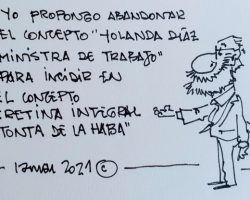 YO PROPONGO ABANDONAR
EL CONCEPTO "YOLANDA DÍAZ
MINISTRA DE TRABAJO"
PARA INCIDIR EN
EL CONCEPTO
CRETINA INTEGRAL
TONTA DE LA HABA"
2021 ©